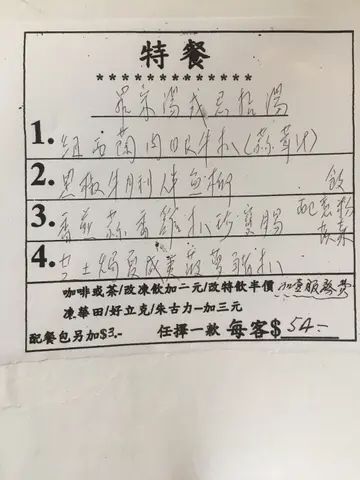 特餐
* * * * * * * * * * *
羅宋湯或忌廉湯
1. 紐西蘭肉眼牛扒(蒜茸汁)
2. 黑椒牛利併魚柳
3. 香蒜香雞扒珍寶腸
飯
配意粉
4. 芝士焗夏威夷菠蘿豬扒
咖啡或茶/改凍飲加二元/改特飲半價 加壹服務費
凍華田/好立克/朱古力—加三元
配餐包另加$3.- 任擇一款 每客$ 54.-